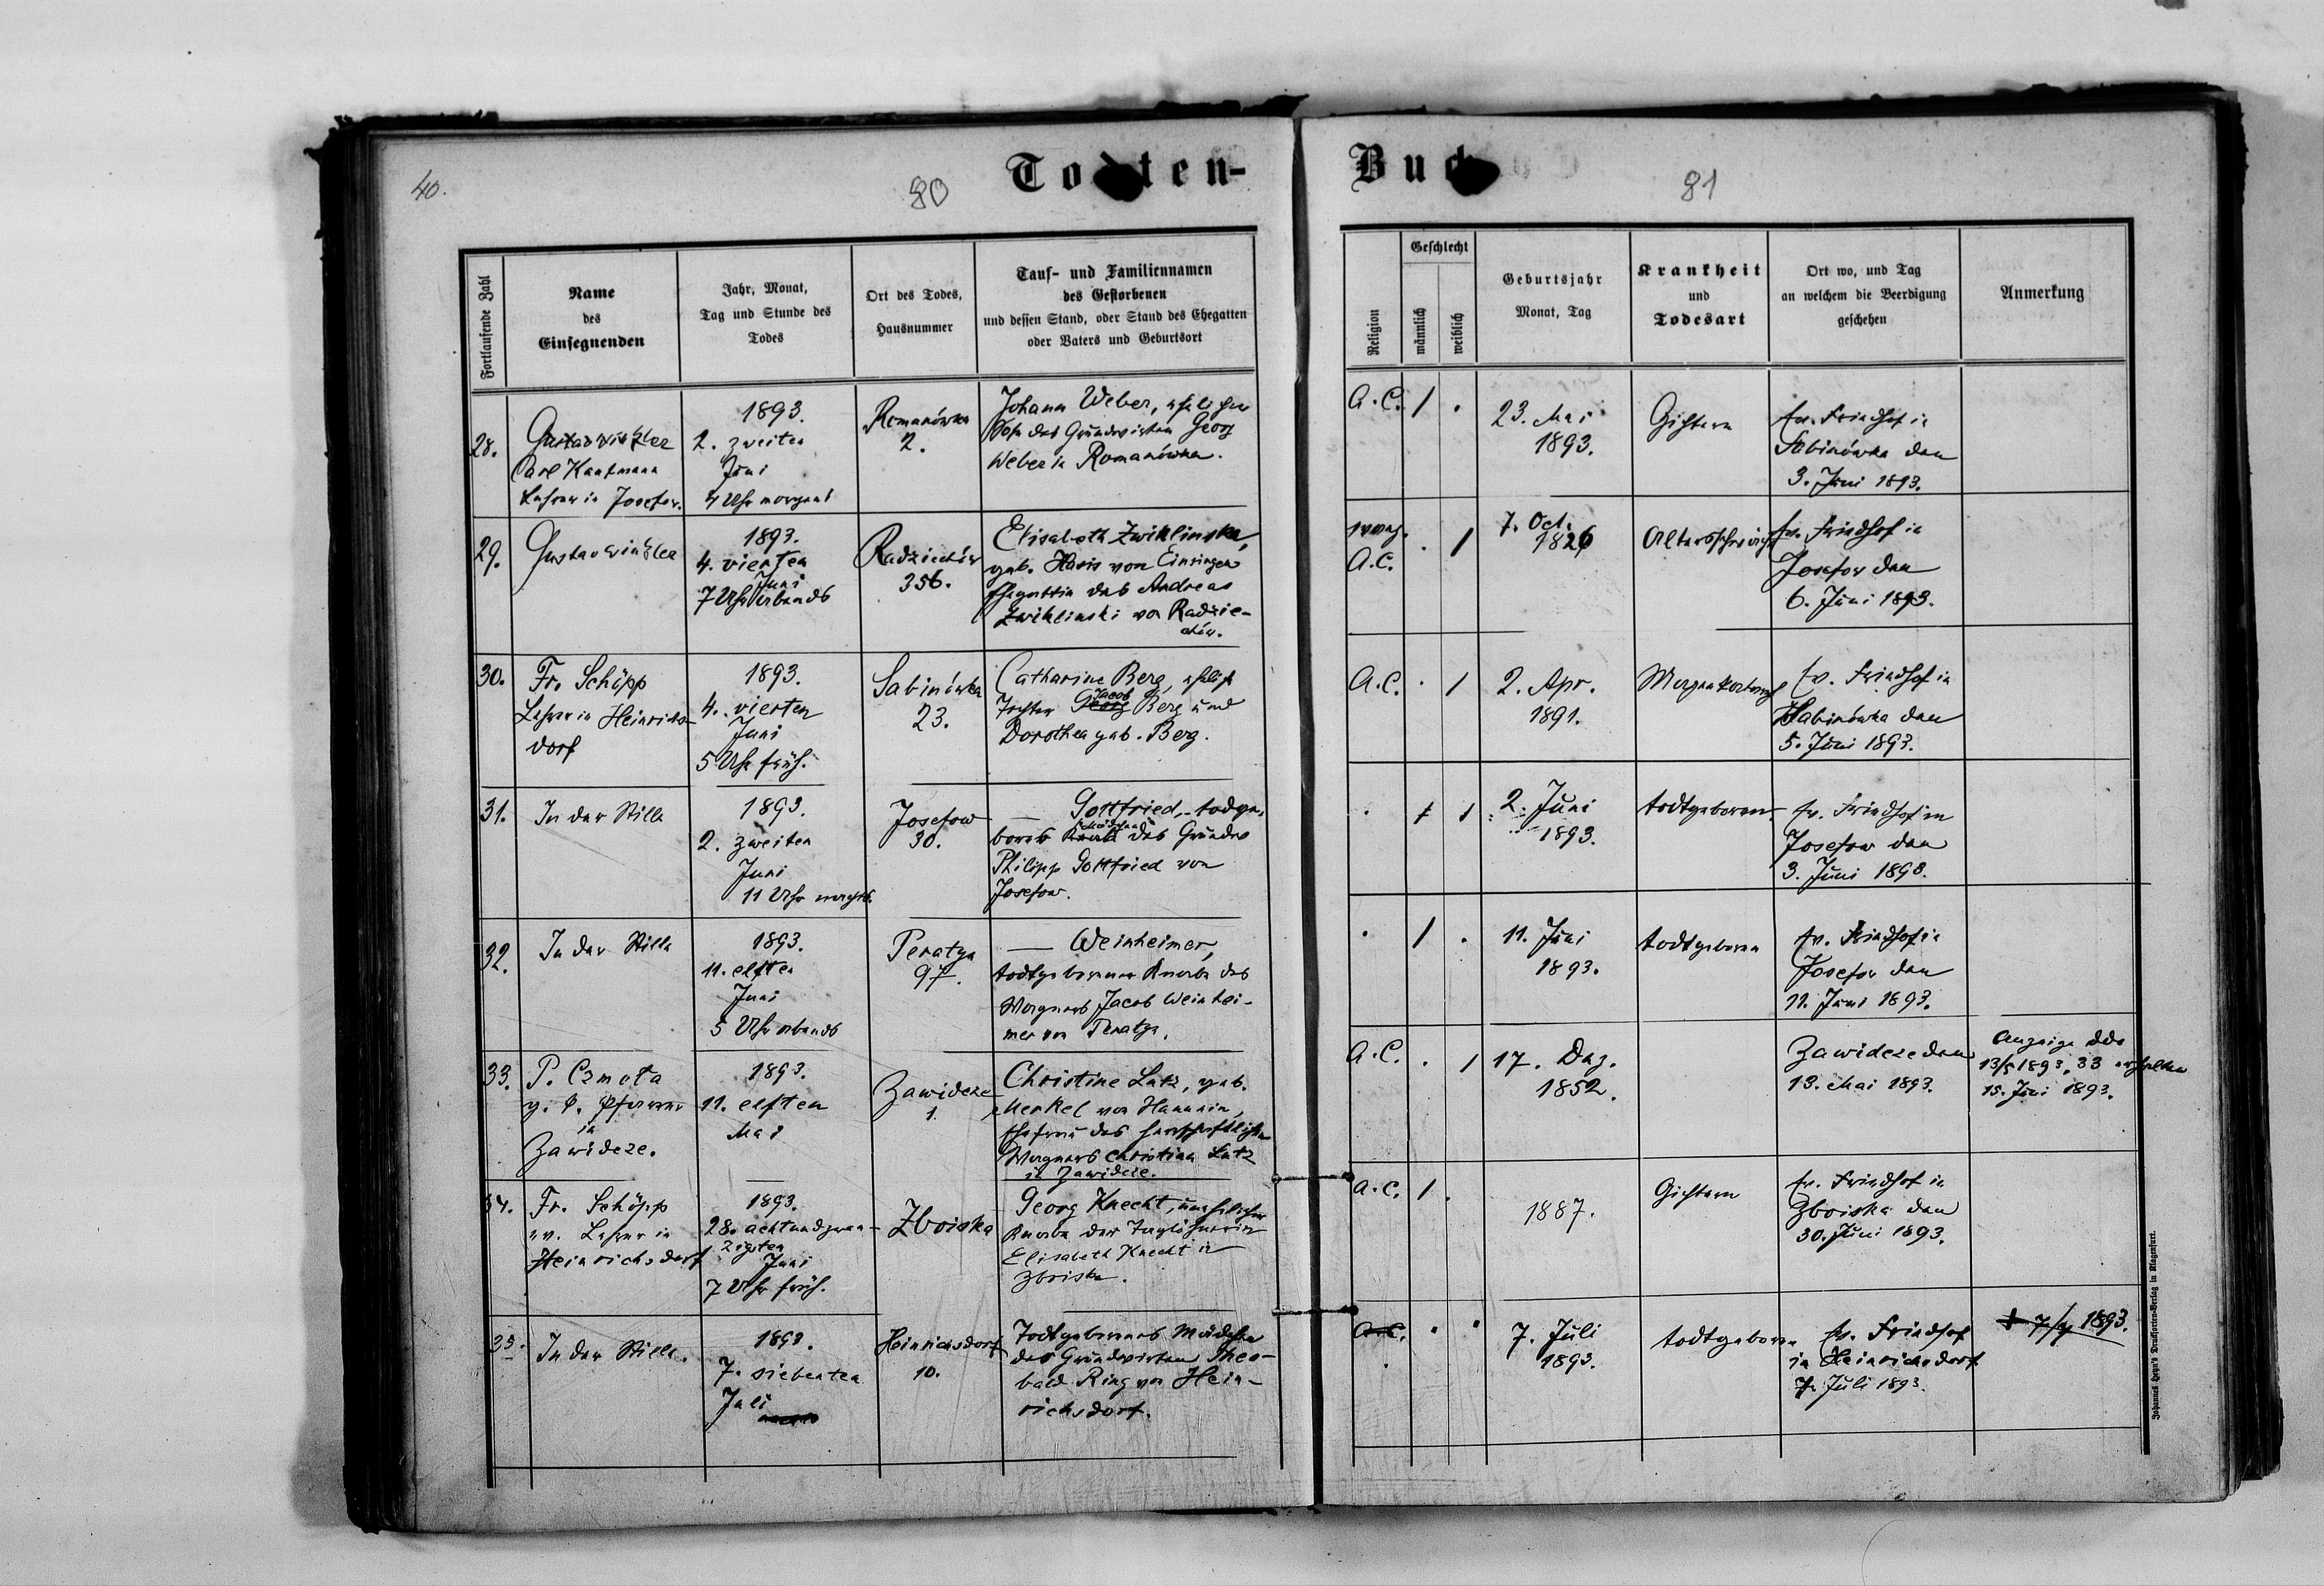 40.
80
Todten-
Buch
81
Fortlaufende Zahl
Name
des
Einsegnenden
Jahr, Monat,
Tag und Stunde des
Todes
Ort des Todes,
Hausnummer
Tauf- und Familiennamen
des Gestorbenen
und dessen Stand, oder Stand des Ehegatten
oder Vaters und Geburtsort
Religion
Geschlecht
männlich
weiblich
Geburtsjahr
Monat, Tag
Krankheit
und
Todesart
Ort wo, und Tag
an welchem die Beerdigung
geschehen
Anmerkung
28.
Gustav
Carl Kaufmann
Lehrer in Josefow.
1893.
2. zweiten
Juni
4 Uhr morgens
Romanówka
2.
Johann Weber, ehelicher
Sohn des Grundwirthen Georg
Weber in Romanówka.
A.C. / .
23. Mai
1893.
Gichtern
ev. Friedhof in
Sabinówka den
3. Juni 1893.
29.
Gustav
1893.
4. vierten
Juni
7 Uhr abends
Radziechów
356.
Elisabeth Zwiklinska,
geb. Haris von Einsingen
Ehegattin des Andreas
Zwiklinski von Radzie-
chów.
evang.
A.C. . /
7. Oct.
1826
Altersschwäche
ev. Friedhof in
Josefow den
6. Juni 1893.
30.
Fr. Schöpp
Lehrer in Heinrichs-
dorf
1893.
4. vierten
Juni
5 Uhr früh.
Sabinówka
23.
Catharine Berg, ehelige
Jacob
Tochter Georg Berg und
Dorothea geb. Berg.
A.C. . /
2. Apr.
1891.
ev. Friedhof in
Sabinówka den
5. Juni 1893.
31.
In der Stille
1893.
2. zweiten
Juni
11 Uhr nachts.
Josefow
30.
— Gottfried, todge-
Mädchen
bores Knabe des Grundw
Philipp Gottfried von
Josefow.
2. Juni
1893.
todtgeboren
ev. Friedhof in
Josefow den
3. Juni 1893.
32.
In der Stille
1893.
11. elften
Juni
5 Uhr abends
Peratyn
97.
— Weinheimer,
todtgeborener Knabe des
Wagners Jacob Weinhei-
mer von Peratyn.
. / .
11. Juni
1893.
todtgeboren
ev. Friedhof in
Josefow den
11. Juni 1893.
33.
P. Czmota
g. k. Pfarrer
in
Zawidcze.
1893.
11. elften
Mai
Zawidcze
1.
Christine Lutz, geb.
Merkel von Hanunin,
Ehefrau des herrschaftlichen
Wagners Christian Lutz
in Zawidcze.
A.C. . /
17. Dez.
1852.
Zawidcze den
13. Mai 1893.
Anzeige ddo
13/5 1893, 33 erhalten
15. Juni 1893.
34.
Fr. Schöpp
ev. Lehrer in
Heinrichsdorf
1893.
28. achtundzwan-
zigsten
Juni
7 Uhr früh.
Zboiska
Georg Knecht, unehelicher
Knabe der Taglöhnerin
Elisabeth Knecht in
Zboiska.
A.C. / .
1887.
Gichtern
ev. Friedhof in
Zboiska den
30. Juni 1893.
35.
In der Stille.
1893.
7. siebenten
Juli
Heinrichsdorf
10.
Todtgeborenes Mädchen
des Grundwirthen Theo-
bald Ring von Hein-
richsdorf.
A.C. . .
7. Juli
1893.
todtgeboren
ev. Friedhof
in Heinrichsdorf
7. Juli 1893.
† 7/7 1893.
Johannes Heyn's Drucksorten-Verlag in Klagenfurt.